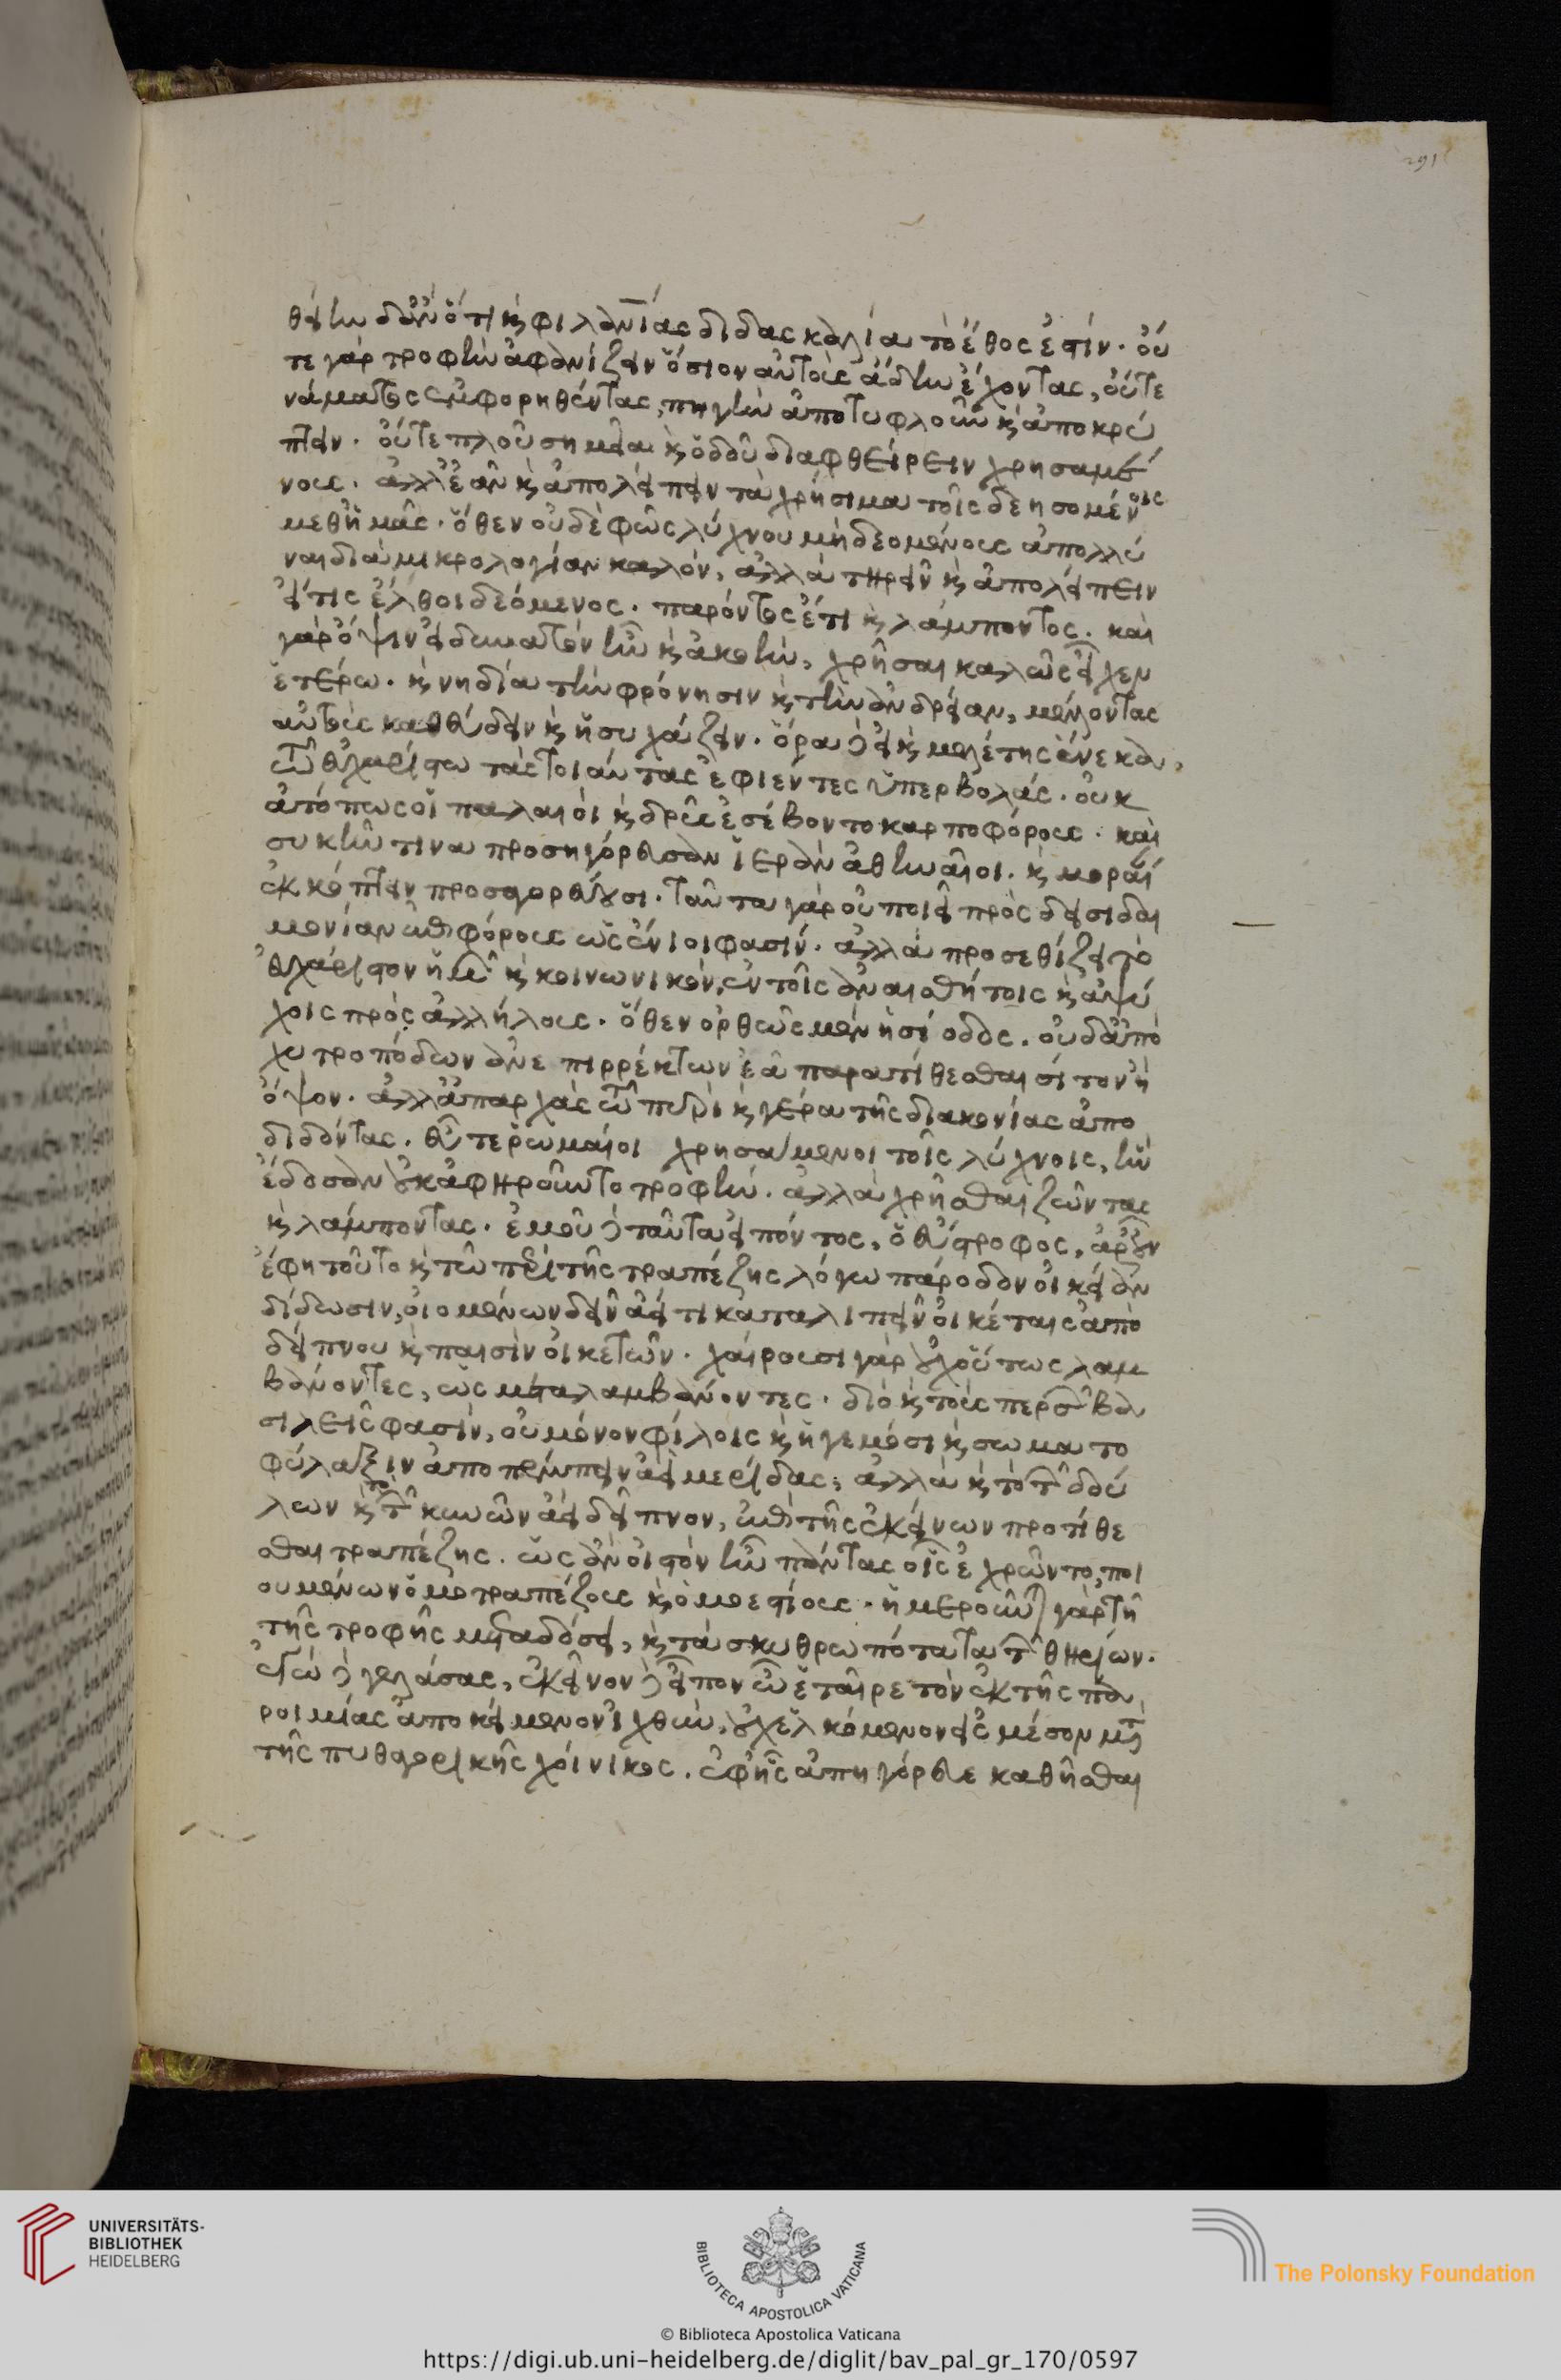 291
θείην δ' ἂν ὅτι καὶ φιλανίας διδασκαλία τὸ ἔθος ἐστίν. οὔ
τε γὰρ τροφὴν ἀφανίζειν ὅσιον αὐτοὺς ἄδην ἔχοντας, οὔτε
νάματος ἐμφορηθέντας, πηγὴν ἀποτυφλοῦν καὶ ἀποκρύ
πτειν. οὔτε πλοῦ σημεῖα καὶ ὁδοῦ διαφθείρειν χρησαμέ
νους. ἀλλ' ἐᾶν καὶ ἀπολείπειν τὰ χρήσιμα τοῖς δεησομένοις
μεθ' ἡμᾶς. ὅθεν οὐδὲ φῶς λύχνου μὴ δεομένους ἀπολλύ
ναι διὰ μικρολογίαν καλόν, ἀλλὰ τηρεῖν καὶ ἀπολείπειν
εἴ τις ἔλθοι δεόμενος. παρόντος ἔτι καὶ λάμποντος. καὶ
γὰρ ὄψιν εἰ δυνατὸν ἦν καὶ ἀκοὴν, χρῆσαι καλῶς εἶχεν
ἑτέρω. καὶ νηδία τὴν φρόνησιν καὶ τὴν ἀνδρείαν, μέλλοντας
αὐτοὺς καθεύδειν καὶ ἡσυχάζειν. ὅρα δὲ εἰ καὶ μελέτης ἕνεκα
τῶ εὐχαρίστω τὰς τοιαύτας ἐφιέντες ὑπερβολάς. οὐκ
ἀτόπως οἱ παλαιοὶ καὶ δρῦς ἐσέβοντο καρποφόρους. καὶ
συκῆν τινα προσηγόρευσαν ἱερὰν ἀθηναῖοι. καὶ μορίαν
ἐκκόπτειν προσαγορεύουσι. ταῦτα γὰρ οὐ ποιεῖ πρὸς δεισιδαι
μονίαν ἐπιφόρους ὡς ἔνιοι φασίν. ἀλλὰ προσεθίζει τὸ
εὐχάριστον ἡμῖν καὶ κοινωνικὸν, ἐν τοῖς ἀναισθήτοις καὶ ἀψύ
χοις πρὸς ἀλλήλους. ὅθεν ὀρθῶς μὲν ἡσίοδος. οὐδ' ἀπὸ
χυτροπόδων ἀνεπιρρέκτων ἐᾶ παρατίθεσθαι σῖτον ἢ
ὄψον. ἀλλ' ἀπαρχὰς τῶ πυρὶ καὶ γέρα τῆς διακονίας ἀπο
διδόντας. εὖ τε ῥωμαῖοι χρησάμενοι τοῖς λύχνοις, ἣν
ἔδοσαν οὐκ ἀφηροῦντο τροφήν. ἀλλὰ χρῆσθαι ζῶντας
καὶ λάμποντας. ἐμοῦ δὲ ταῦτα εἰπόντος, ὁ εὔστροφος, ἆρ' οὖν
ἔφη τοῦτο καὶ τῶ περὶ τῆς τραπέζης λόγω πάροδον οἰκείαν
δίδωσιν, οἰομένων δεῖν ἀεί τι καταλιπεῖν οἰκέταις ἀπὸ
δείπνου καὶ παισὶν οἰκετῶν. χαίρουσι γὰρ οὐχ οὕτως λαμ
βάνοντες, ὡς μεταλαμβάνοντες. διὸ καὶ τοὺς περσῶν βα
σιλεῖς φασὶν, οὐ μόνον φίλοις καὶ ἡγεμόσι καὶ σωματο
φύλαξιν ἀποπέμπειν ἀεὶ μερίδας, ἀλλὰ καὶ τὸ τῶν δού
λων καὶ τὸ τῶν κυνῶν ἀεὶ δεῖπνον, ἐπὶ τῆς ἐκείνων προτίθε
σθαι τραπέζης. ὡς ἀνοιστὸν ἦν πάντας οἷς ἐχρῶντο, ποι
ουμένων ὁμοτραπέζους καὶ ὁμοεστίους. ἡμεροῦνται γὰρ τῆ
τῆς τροφῆς μεταδόσει, καὶ τὰ σκυθρωπότατα τῶν θηρίων.
ἐγὼ δὲ γελάσας, ἐκεῖνον δὲ εἶπον ὦ ἑταῖρε τὸν ἐκ τῆς πα
ροιμίας ἀποκείμενον ἰχθὺν, οὐχ ἕλκόμενον εἰς μέσον μετὰ
τῆς πυθαγορικῆς χοίνικος. ἐφ' ἧς ἀπηγόρευε καθῆσθαι
UNIVERSITÄTS-
BIBLIOTHEK
HEIDELBERG
BIBLIOTECA APOSTOLICA VATICANA
The Polonsky Foundation
© Biblioteca Apostolica Vaticana
https://digi.ub.uni-heidelberg.de/diglit/bav_pal_gr_170/0597